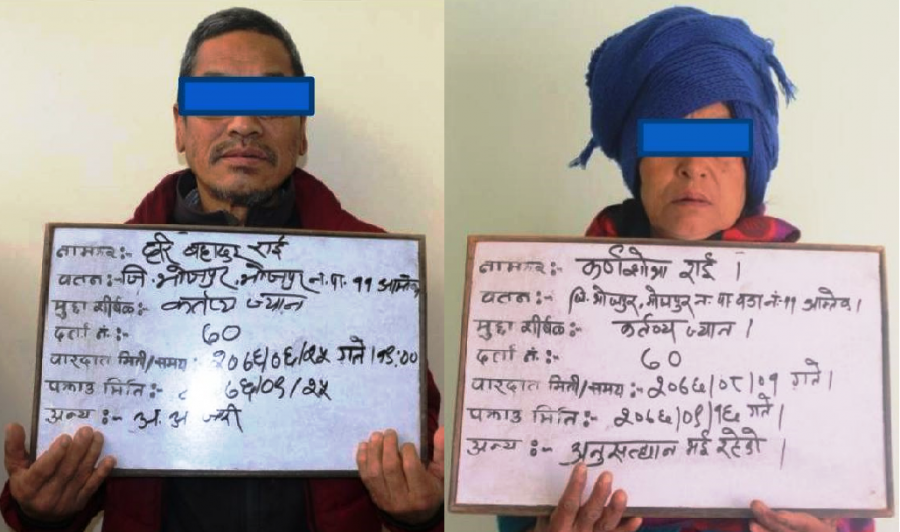 नामथर:- हरि बहादुर राई
वतन:- जि. भोजपुर, भोजपुर न. पा. ११
मुद्दा शीर्षक:- कर्तव्य ज्यान
दर्ता नं.:- ६०
वारदात मिती/समय: २०७६/०८/२५ गते।१९:००
पक्राउ मिति:- ७६/०९/२५
अन्य:- अ. अ जारी
नामथर:- कर्णशोभा राई।
वतन:- जि. भोजपुर, भोजपुर न. पा वडा नं. ११
मुद्दा शीर्षक:- कर्तव्य ज्यान।
दर्ता नं.:- ६०
वारदात मिती/समय:- २०७६/०८/०१ गते।
पक्राउ मिति:- २०७६/०९/१६ गते।
अन्य:- अनुसन्धान भई रहेको।